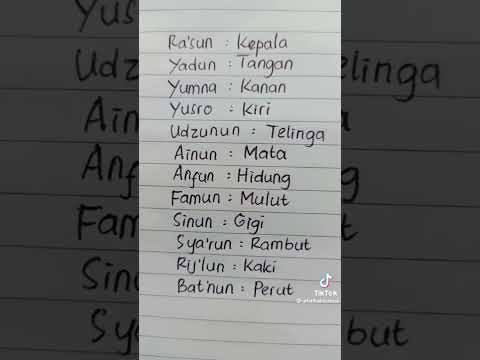 Ra'sun : Kepala
Yadun : Tangan
Yumna : Kanan
Yusro : Kiri
Udzunun : Telinga
Ainun : Mata
Anfun : Hidung
Famun : Mulut
Sinun : Gigi
Sya'run : Rambut
Rij'lun : Kaki
Bat'nun : Perut
TikTok